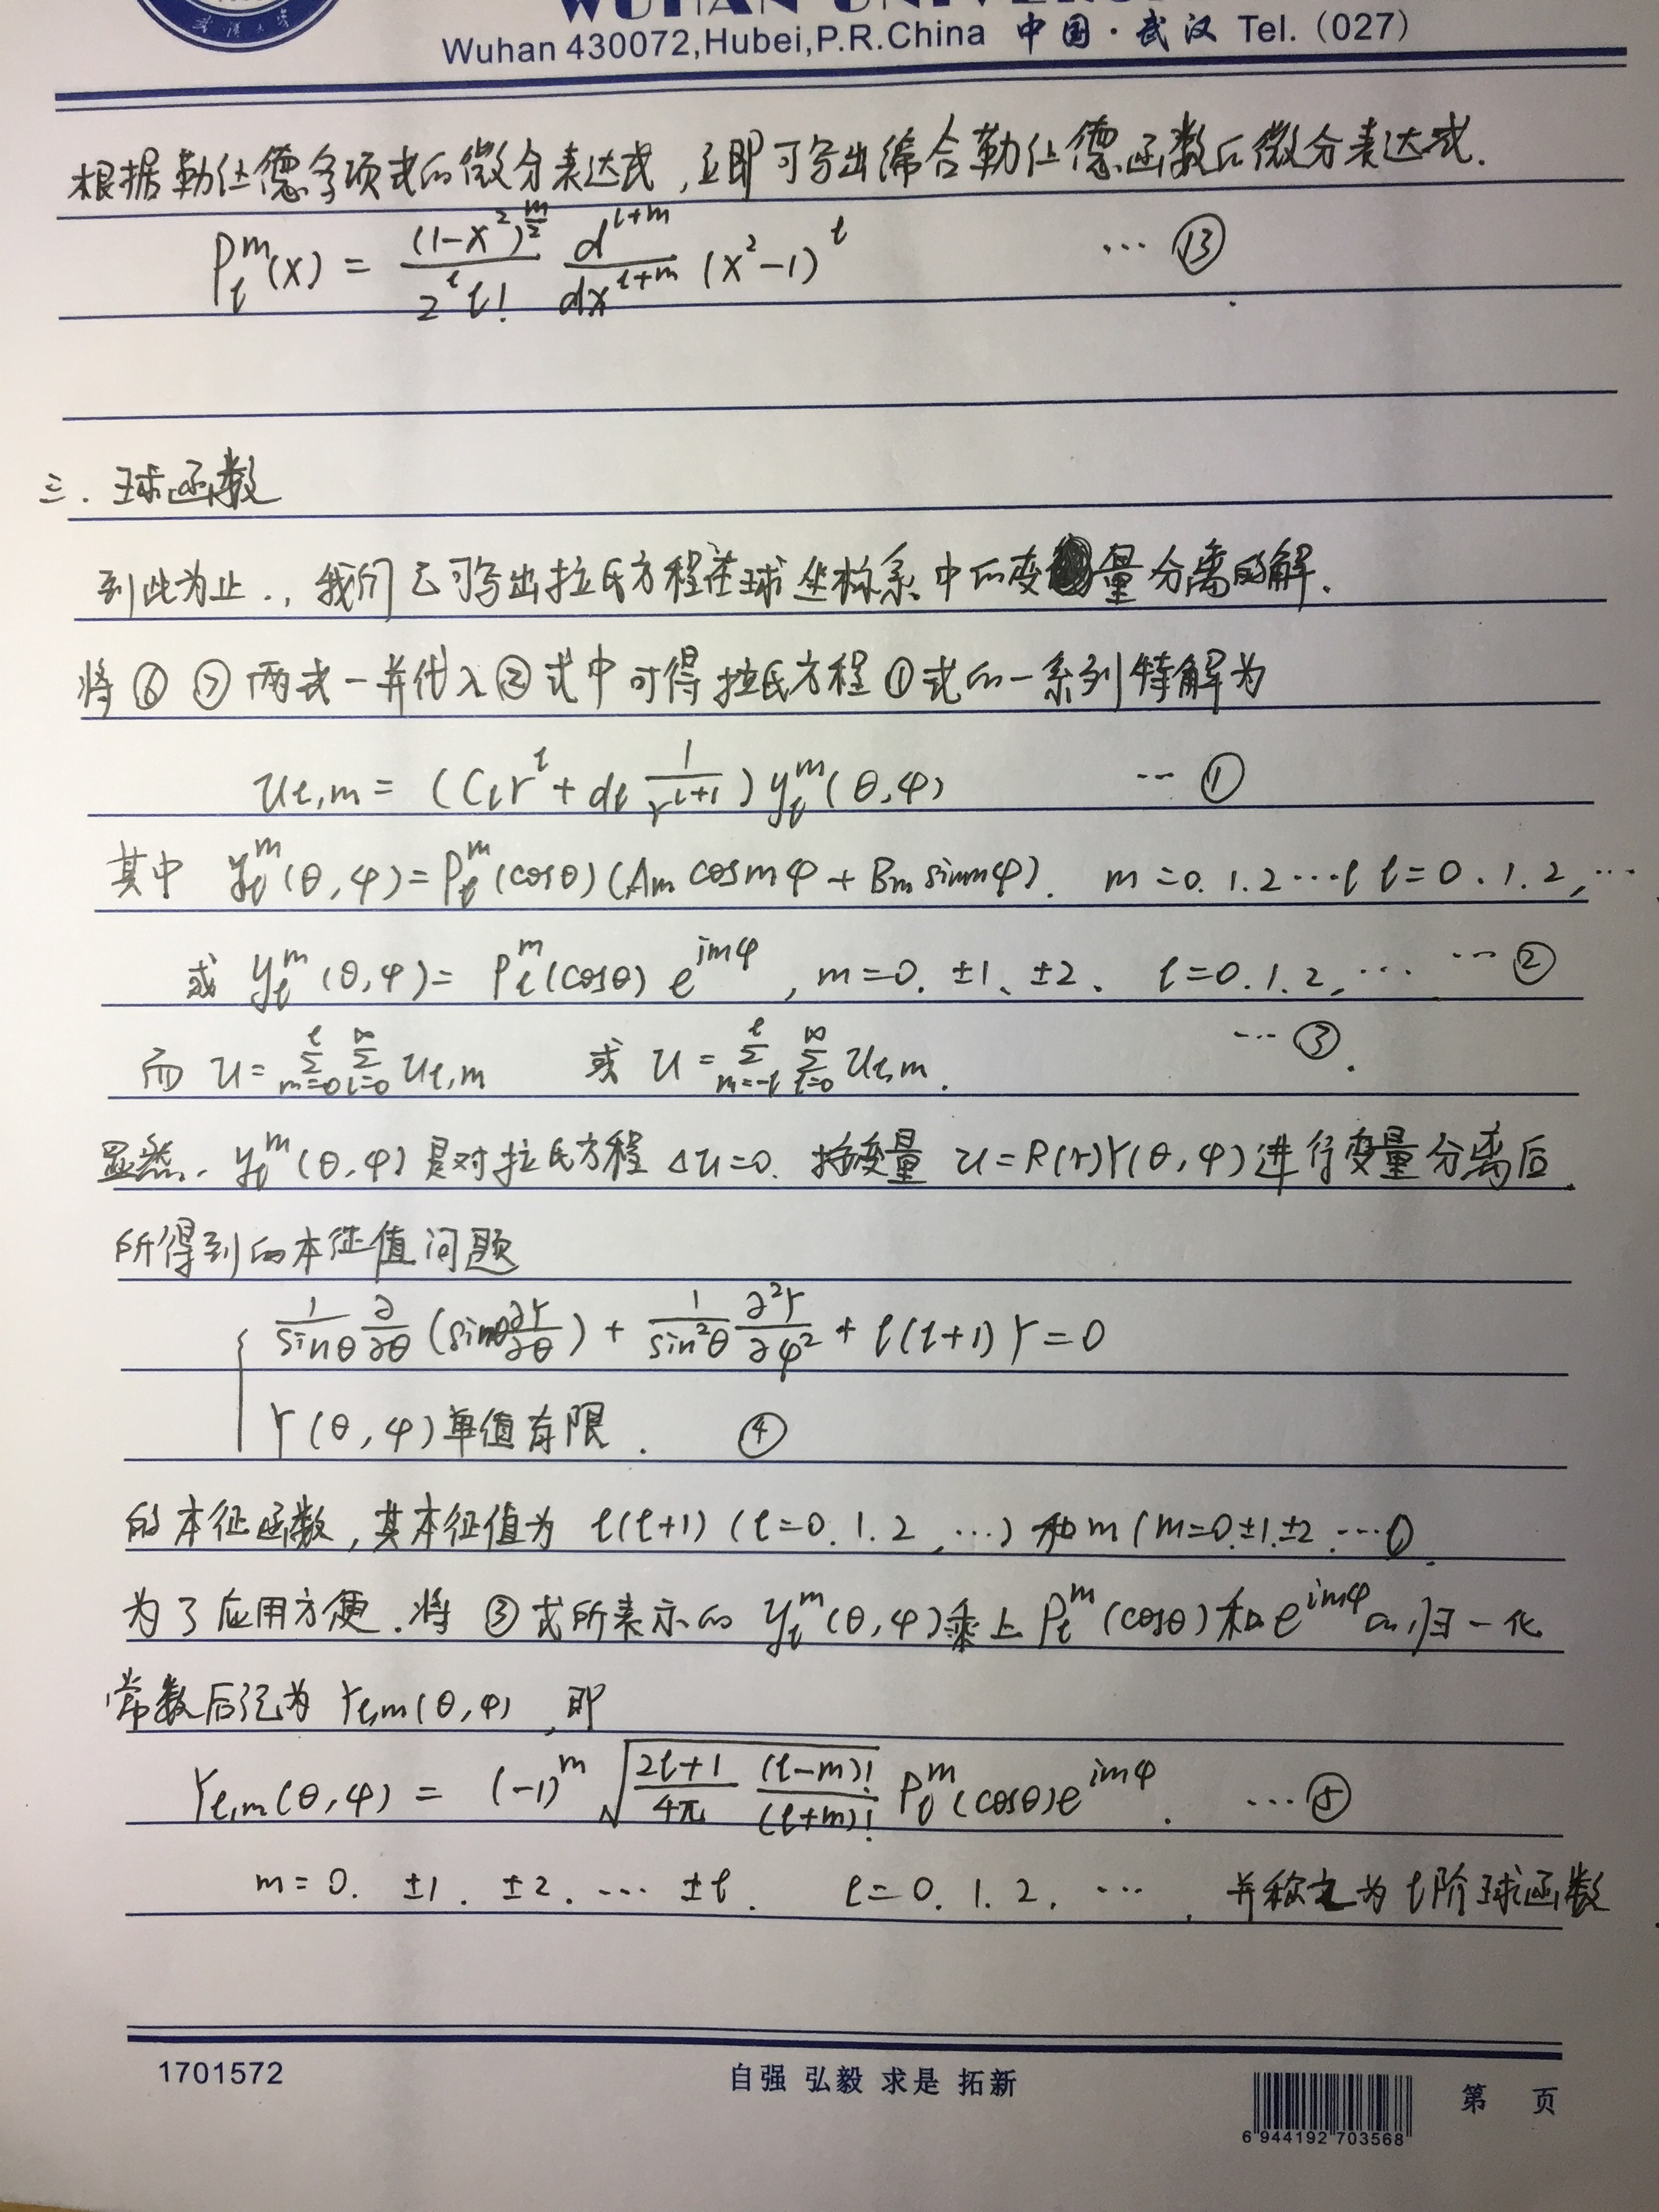 武汉大学
WUHAN UNIVER
Wuhan 430072,Hubei,P.R.China 中国·武汉 Tel.(027)
根据勒让德多项式的微分表达式,立即可写出缔合勒让德函数的微分表达式.
P_l^m(x) = \frac{(1-x^2)^{\frac{m}{2}}}{2^l l!} \frac{d^{l+m}}{dx^{l+m}} (x^2-1)^l ··· ⑬
三. 球函数
到此为止., 我们已可写出拉氏方程在球坐标系中的变量分离的解.
将⑥⑦两式一并代入②式中可得拉氏方程①式的一系列特解为
u_{l,m} = (C_l r^l + d_l \frac{1}{r^{l+1}}) y_l^m(θ,φ) ··· ①
其中 y_l^m(θ,φ)=P_l^m(cosθ)(A_m cosmφ + B_m sinmφ). m=0.1.2···l l=0.1.2,···
或 y_l^m(θ,φ)= P_l^m(cosθ) e^{imφ}, m=0. ±1、±2、 l=0.1.2,··· ··· ②
而 u=\sum_{m=0}^{l} \sum_{l=0}^{∞} u_{l,m} 或 u=\sum_{m=-l}^{l} \sum_{l=0}^{∞} u_{l,m}. ··· ③.
显然、y_l^m(θ,φ)是对拉氏方程 Δu=0. 按变量 u=R(r)Y(θ,φ)进行变量分离后.
所得到的本征值问题
\frac{1}{sinθ} \frac{∂}{∂θ} (sinθ\frac{∂Y}{∂θ}) + \frac{1}{sin^2θ} \frac{∂^2Y}{∂φ^2} + l(l+1)Y=0
Y(θ,φ)单值有限. ④
的本征函数,其本征值为 l(l+1) (l=0.1.2,···)和m(m=0.±1.±2.···l).
为了应用方便.将③式所表示的 y_l^m(θ,φ)乘上 P_l^m(cosθ)和e^{imφ}的归一化
常数后记为 Y_{l,m}(θ,φ),即
Y_{l,m}(θ,φ) = (-1)^m \sqrt{\frac{2l+1}{4π} \frac{(l-m)!}{(l+m)!}} P_l^m(cosθ)e^{imφ}. ···⑤
m=0. ±1. ±2. ··· ±l. l=0.1.2.···. 并称之为l阶球函数
1701572
自强 弘毅 求是 拓新
第 页
6 944192 703568